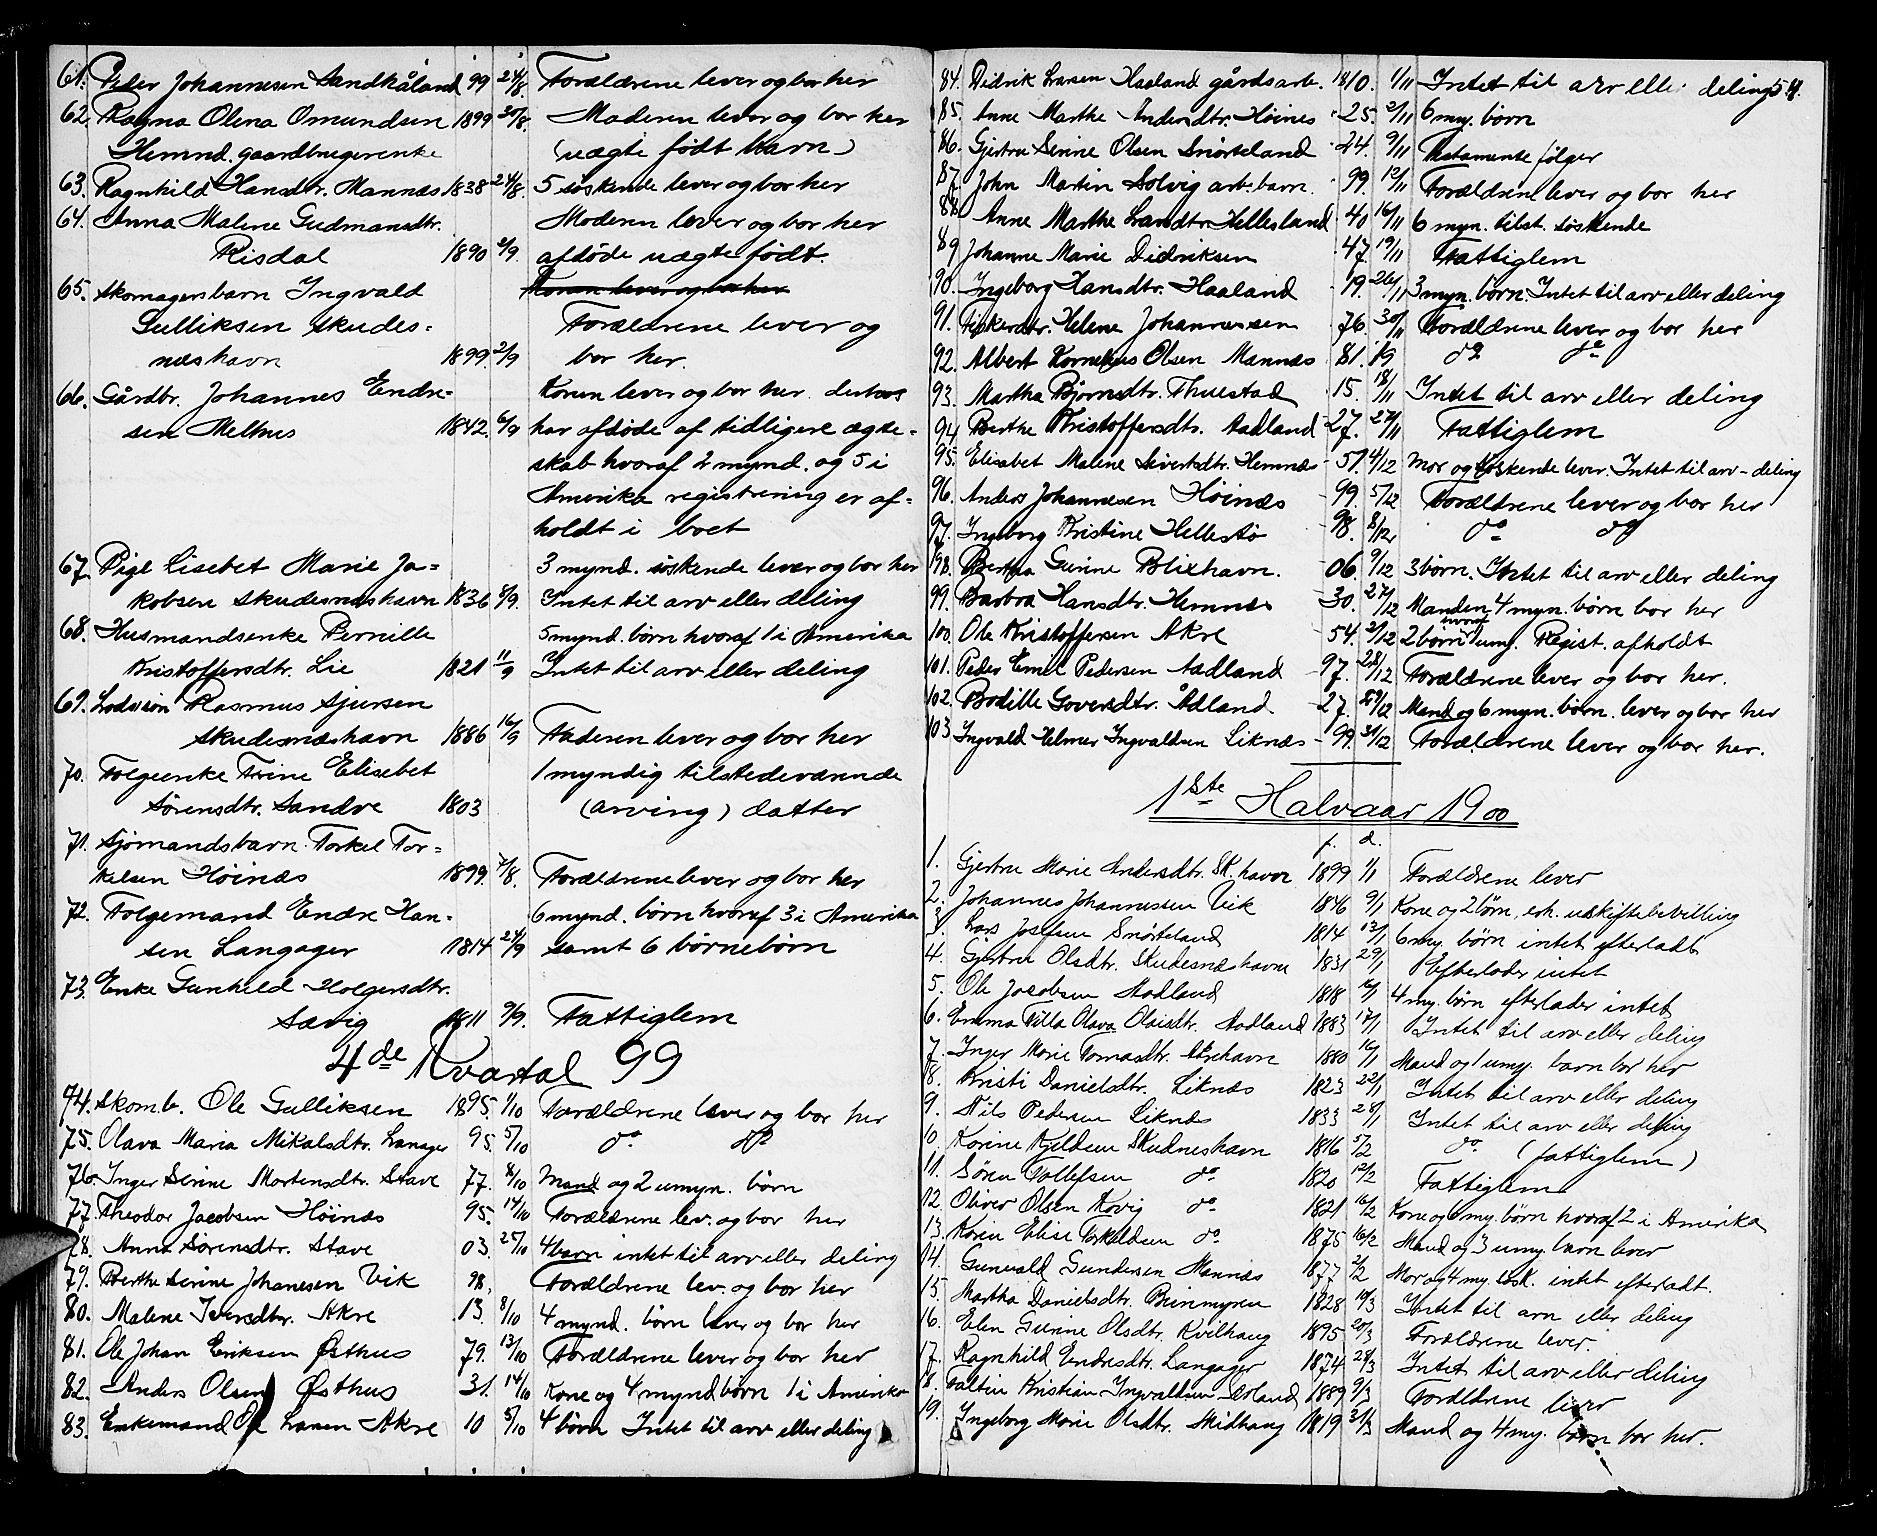 61. Peder Johannesen Sandhåland 99 24/8 Forældrene lever og bor her
62. Ragna Olena Omundsen 1899 20/8. Moderen lever og bor her
Hemnd. gaardbrugerenke (uægte født barn)
63. Ragnhild Hansdtr. Mannæs 1838 24/8. 5 søskende lever og bor her
64. Anna Malene Gudmansdtr. Moderen lever og bor her
Risdal 1890 2/9. afdøde uægte født.
65. Skomagersbarn Ingvald
Gulliksen Skudes= Forældrene lever og
næshavn 1899. 2/9 bor her.
66. Gårdbr. Johannes Endre= Konen lever og bor her
sen Melknes 1842. 6/9 har afdøde af tidligere ægte=
skab hvoraf 2 mynd. og 5 i
Amerika registrering er af=
holdt i boet
67. Pige Lisebet Marie Ja= 3 mynd. søskende lever og bor her
kobsen Skudesneshavn 1836 8/9. Intet til arv eller deling
68. Husmandsenke Pernille 5 mynd. børn hvoraf 1 i Amerika
Kristoffersdtr. Lie 1821 11/9 Intet til arv eller deling
69. Lodssøn Rasmus Sjursen
Skudesnæshavn 1886 16/9 Faderen lever og bor her
70. Folgeenke Trine Elisebet 1 myndig tilstedeværende
Sørensdtr. Sandve 1803 (arving) datter
71. Sjømandsbarn Torkel Tor=
kelsen Høinæs 1899. 7/8. Forældrene lever og bor her
72. Folgemand Endre Han= 6 mynd. børn hvoraf 3 i Amerika
sen Langager 1814 24/9 samt 6 børnebørn
73. Enke Gunhild Holgersdtr.
Sævig 1811 9/9. Fattiglem
4de Kvartal 99
74. Skomb. Ole Gulliksen 1895. 1/10 Forældrene lever og bor her
75. Olava Maria Mikalsdtr. Langager 95. 5/10 do do
76. Inger Serine Mortensdtr. Stave 77. 8/10 Mand og 2 umyn. børn
77. Theodor Jacobsen Høinæs 95. 14/10 Forældrene lev. og bor her
78. Anna Sørensdtr. Stave 03. 25/10 4 barn intet til arv eller deling
79. Berthe Serine Johanesen Vik 98. Forældrene lev. og bor her
80. Malene Iversdtr. Akre 13. 8/10 4 mynd. børn lever og bor her
81. Ole Johan Eriksen Østhus 79. 13/10 Forældrene lever og bor her
82. Anders Olsen Østhus 31. 14/10 Kone og 4 mynd børn 1 i Amerika
83. Enkemand Ole Larsen Akre 10 5/10 4 børn Intet til arv eller deling
84. Didrik Larsen Haaland gårdsarb. 1810. 1/11 Intet til arv eller deling 54.
85. Anne Marthe Andersdtr. Høines 25. 2/11 6 my. børn
86. Gjertru Serine Olsen Snørteland 24. 9/11 Testamente følger
87. John Martin Solvig arb. barn 99. 12/11 Forældrene lever og bor her
88. Anne Marthe Larsdtr. Hellesland 40 16/11 6 myn. tilst. søskende
89 Johanne Marie Didriksen 47. 19/11 Fattiglem
90. Ingeborg Hansdtr. Haaland 19. 26/11 3 myn. børn Intet til arv eller deling
91. Fiskerdtr. Helene Johannessen 76. 30/11 Forældrene lever og bor her
92. Albert Kornelius Olsen Mannæs 81. do do
93. Martha Bjørnsdtr. Thuestad 15. 18/11 Intet til arv eller deling
94 Berthe Kristoffersdtr. Aadland 27. 27/11 Fattiglem
95. Elisabet Malene Sivertsdtr. Hemnæs 51. 4/12 Mor og søskende lever. Intet til arv – deling
96. Anders Johannesen Høinæs 99. 5/12 Forældrene lever og bor her
97. Ingeborg Kristine Hellestø 98. 8/12 do do
98. Bertha Gurine Blixhavn. 06. 9/12 3 børn. Intet til arv eller deling
99. Barbra Hansdtr. Hemnæs 30. 27/12 Manden, 4 myn. børn bor her
100. Ole Kristoffersen Akre 54. 2/12 2 børn hvoraf 1 umy. Regist. afholdt
101. Peder Emil Pedersen Aadland 97. 28/12 Forældrene lever og bor her.
102. Bodille Goversdtr. Ådland 27. 29/12 Mand og 6 myn. børn. lever og bor her
103 Ingvald Helmer Ingvaldsen Liknæs 99. 31/12 Forældrene lever og bor her.
1ste Halvaar 1900
f. d.
1. Gjertru Marie Andersdtr. Sk.havn 1899 1/1 Forældrene lever
2. Johannes Johannessen Vik 1846 9/1 Kone og 2 børn, erh. uskiftebevilling
3. Lars Josefsen Snørteland 1814 13/1 6 my. børn intet efterladt
4. Gjertru Olsdtr. Skudesnæshavn 1831 29/1 Efterlader intet
5. Ole Jacobsen Aadland 1818 16/1 4 my. børn efterlader intet
6. Emma Tilla Olava Olaisdtr. Aadland 1883 17/1 Intet til arv eller deling
7. Inger Marie Tomasdtr. Akrehavn 1880 16/1 Mand og 1 umy. barn bor her
8. Kristi Danielsdtr. Liknæs 1823 22/1 Intet til arv eller deling
9. Nils Pedersen Liknæs 1833 28/1 Intet til arv eller deling
10. Karine Kjeldsen Skudneshavn 1816 5/2 do (fattiglem)
11. Søren Tollefsen do 1820 12/2 Fattiglem
12. Oliver Olsen Kovig do 1821 16/2 Kone og my. børn hvoraf 2 i Amerika
13. Karen Elise Torkeldsen do 1875 16/2 Mand og 3 umy. børn lever
14. Gunvald Gundersen Mannæs 1877 2/2 Mor og 4 my. søsk. intet efterladt.
15. Martha Danielsdtr. Breimyren 1828 10/3 Intet til arv eller deling
16. Elen Gurine Olsdtr. Kvilhaug 1895 20/3 Forældrene lever.
17. Ragnhild Endresdtr. Langager 1874 28/3 Intet til arv eller deling
18. Faltin Kristian Ingvaldsen Aarland 1889 9/3 Forældrene lever
19. Ingeborg Marie Olsdtr. Midhaug 1819 31/3 Mand og 4 my. børn bor her.